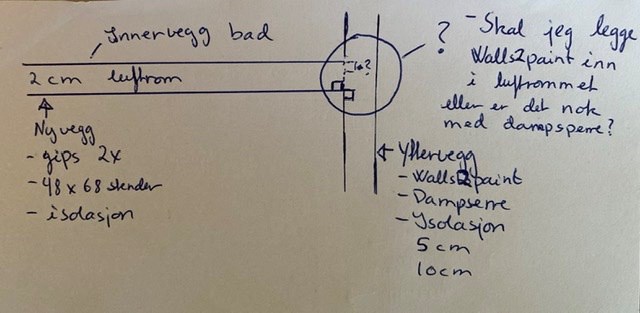 Innervegg bad
2 cm luftrom
Ny vegg
- gips 2x
- 48 x 68 stender
- isolasjon
?
- Skal jeg legge
Walls2paint inn
i luftrommet
eller er det nok
med dampsperre?
Yttervegg
- Walls2paint
- Dampserre
- Ysolasjon
5 cm
10cm